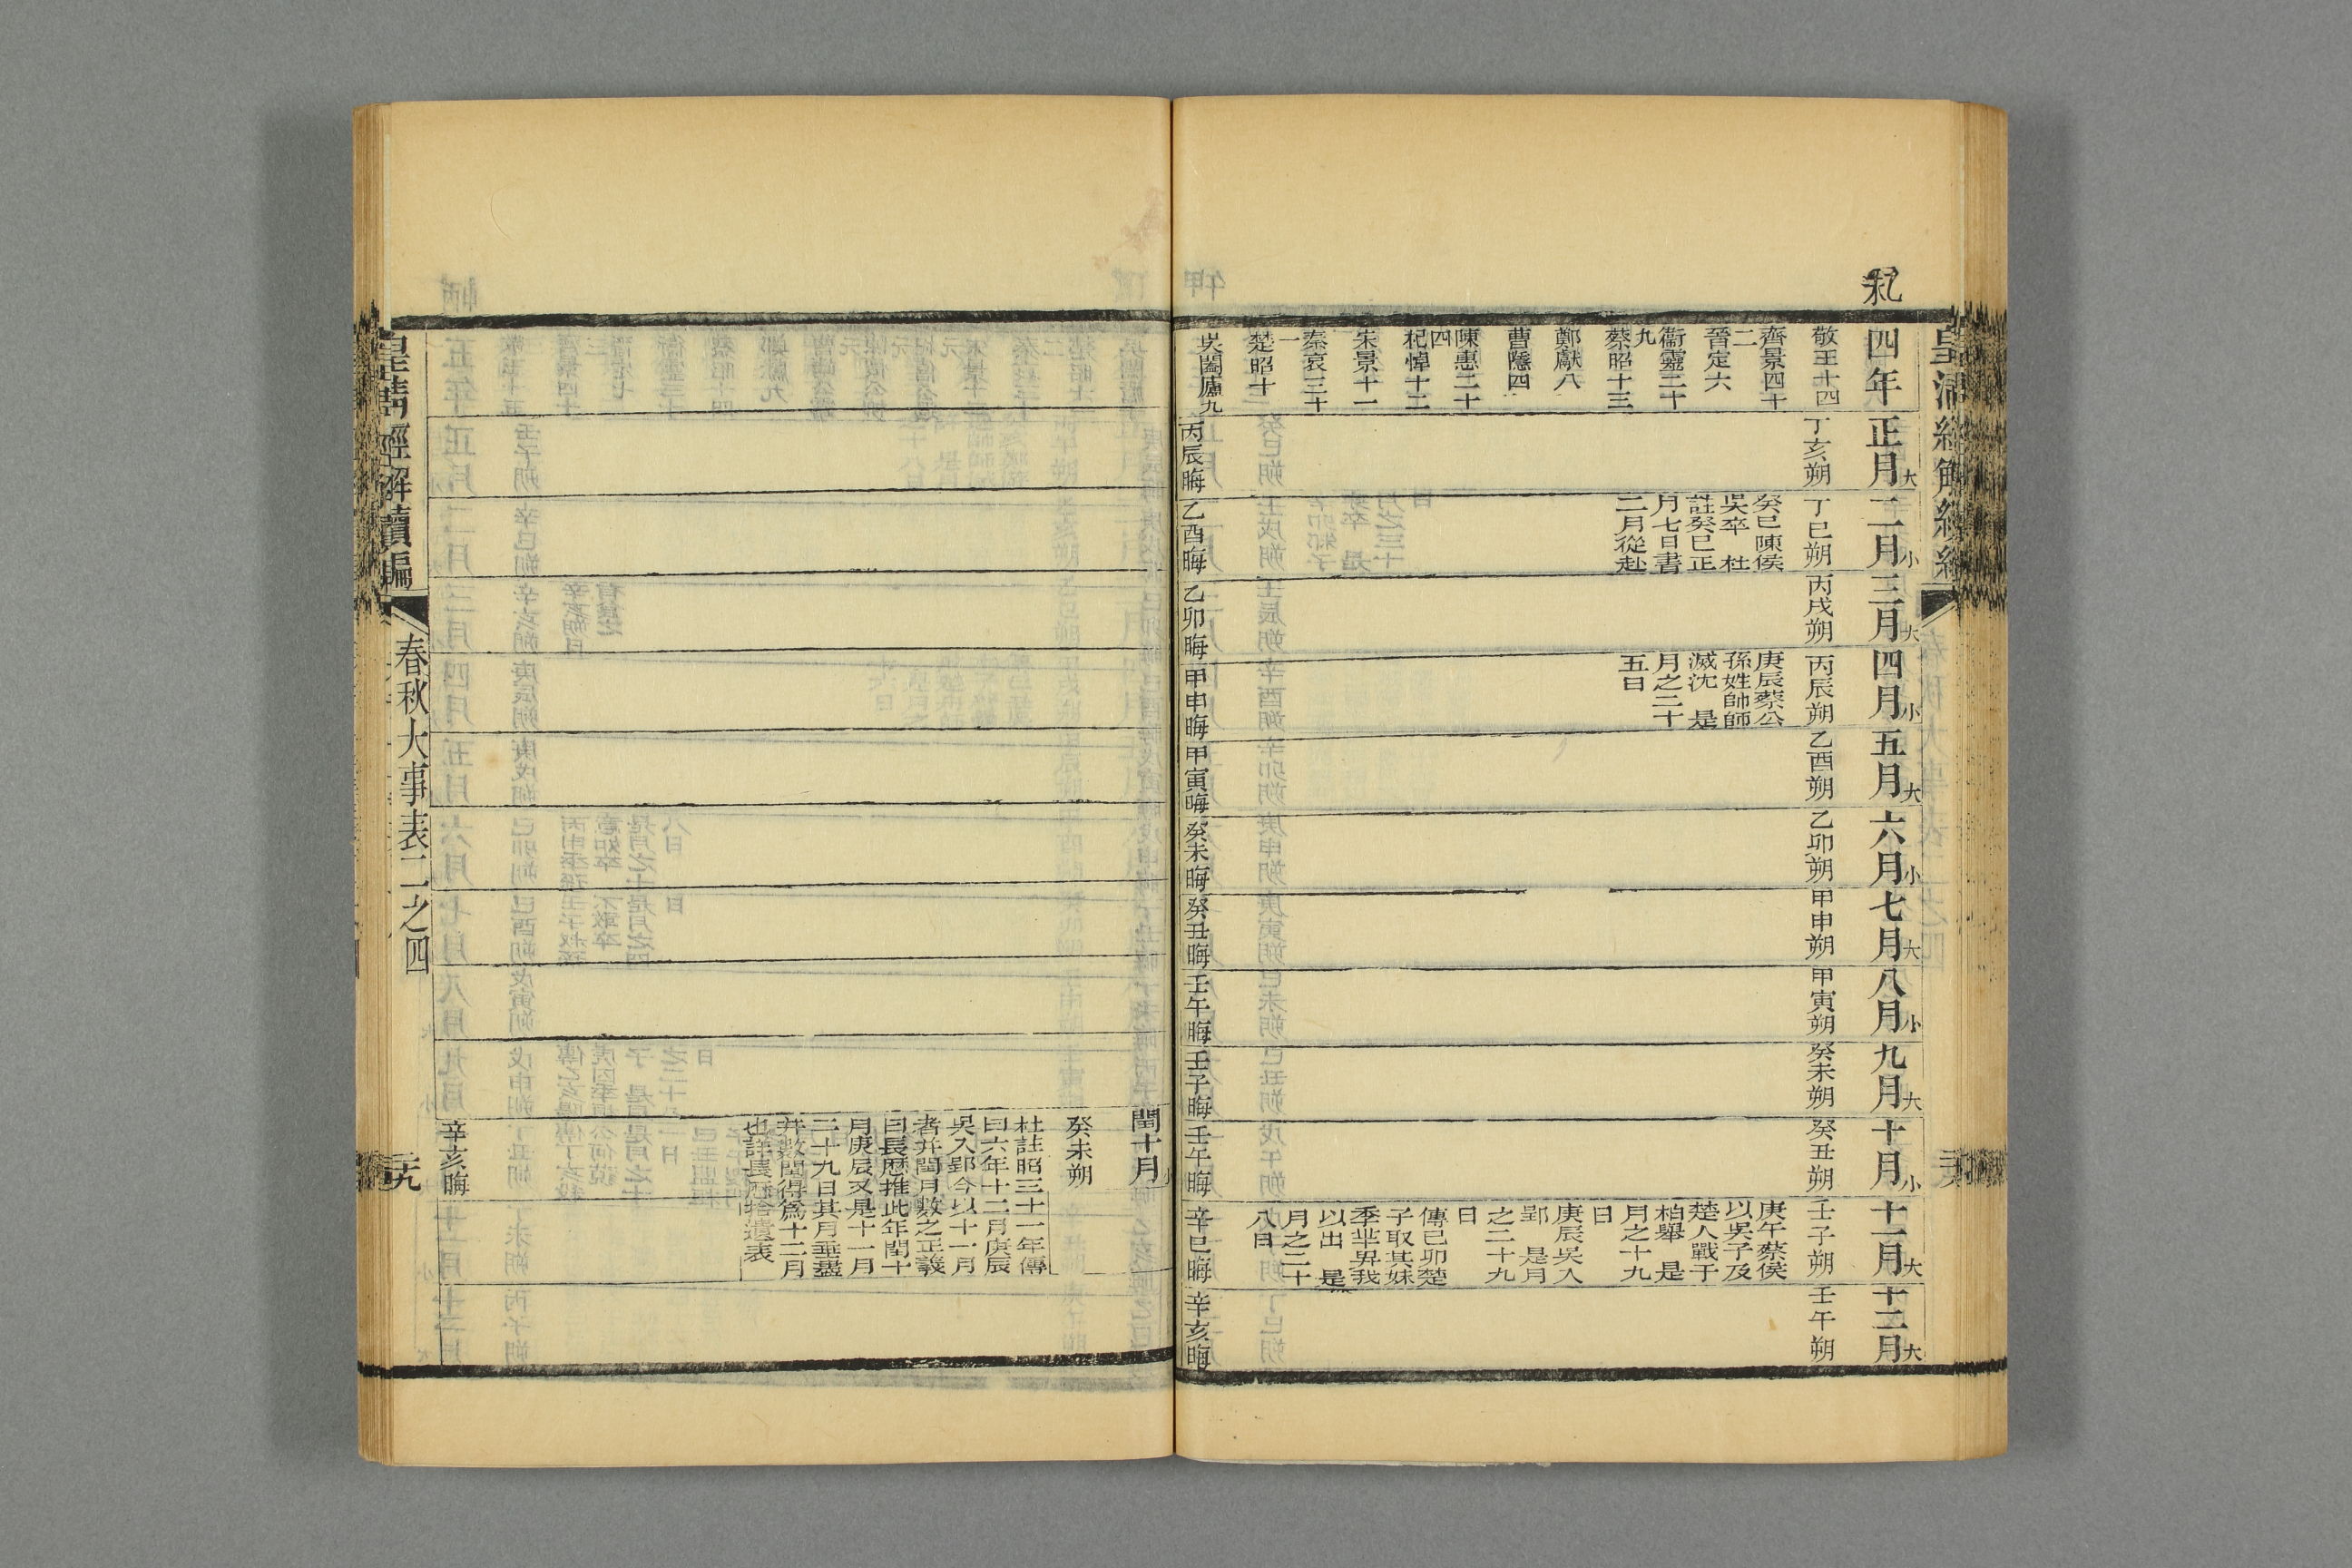 四年
敬王十四
齊景四十
二
晉定六
衞靈二十
九
蔡昭十三
鄭獻八
曹隱四
陳惠二十
四
杞悼十二
宋景十一
秦哀三十
一
楚昭十
吳闔廬九
正月大
丁亥朔
丙辰晦
二月小
丁巳朔
癸巳陳侯
吳卒　杜
註癸巳正
月七日書
二月從赴
乙酉晦
三月大
丙戌朔
乙卯晦
四月小
丙辰朔
庚辰蔡公
孫姓帥師
滅沈　是
月之二十
五日
甲申晦
五月大
乙酉朔
甲寅晦
六月小
乙卯朔
癸未晦
七月大
甲申朔
癸丑晦
八月小
甲寅朔
壬午晦
九月大
癸未朔
壬子晦
十月小
癸丑朔
壬午晦
十一月大
壬子朔
庚午蔡侯
以吳子及
楚人戰于
柏舉　是
月之十九
日
庚辰吳入
郢　是月
之二十九
日
傳己卯楚
子取其妹
季芈畀我
以出　是
月之二十
八日
辛巳晦
十二月大
壬午朔
辛亥晦
閏十月小
癸未朔
杜註昭三十一年傳
曰六年十二月庚辰
吳入郢今以十一月
者并閏月數之正義
曰長厯推此年閏十
月庚辰又是十一月
二十九日其月垂盡
并數閏得爲十二月
也詳長厯拾遺表
辛亥晦
皇清經解續編
春秋大事表二之四